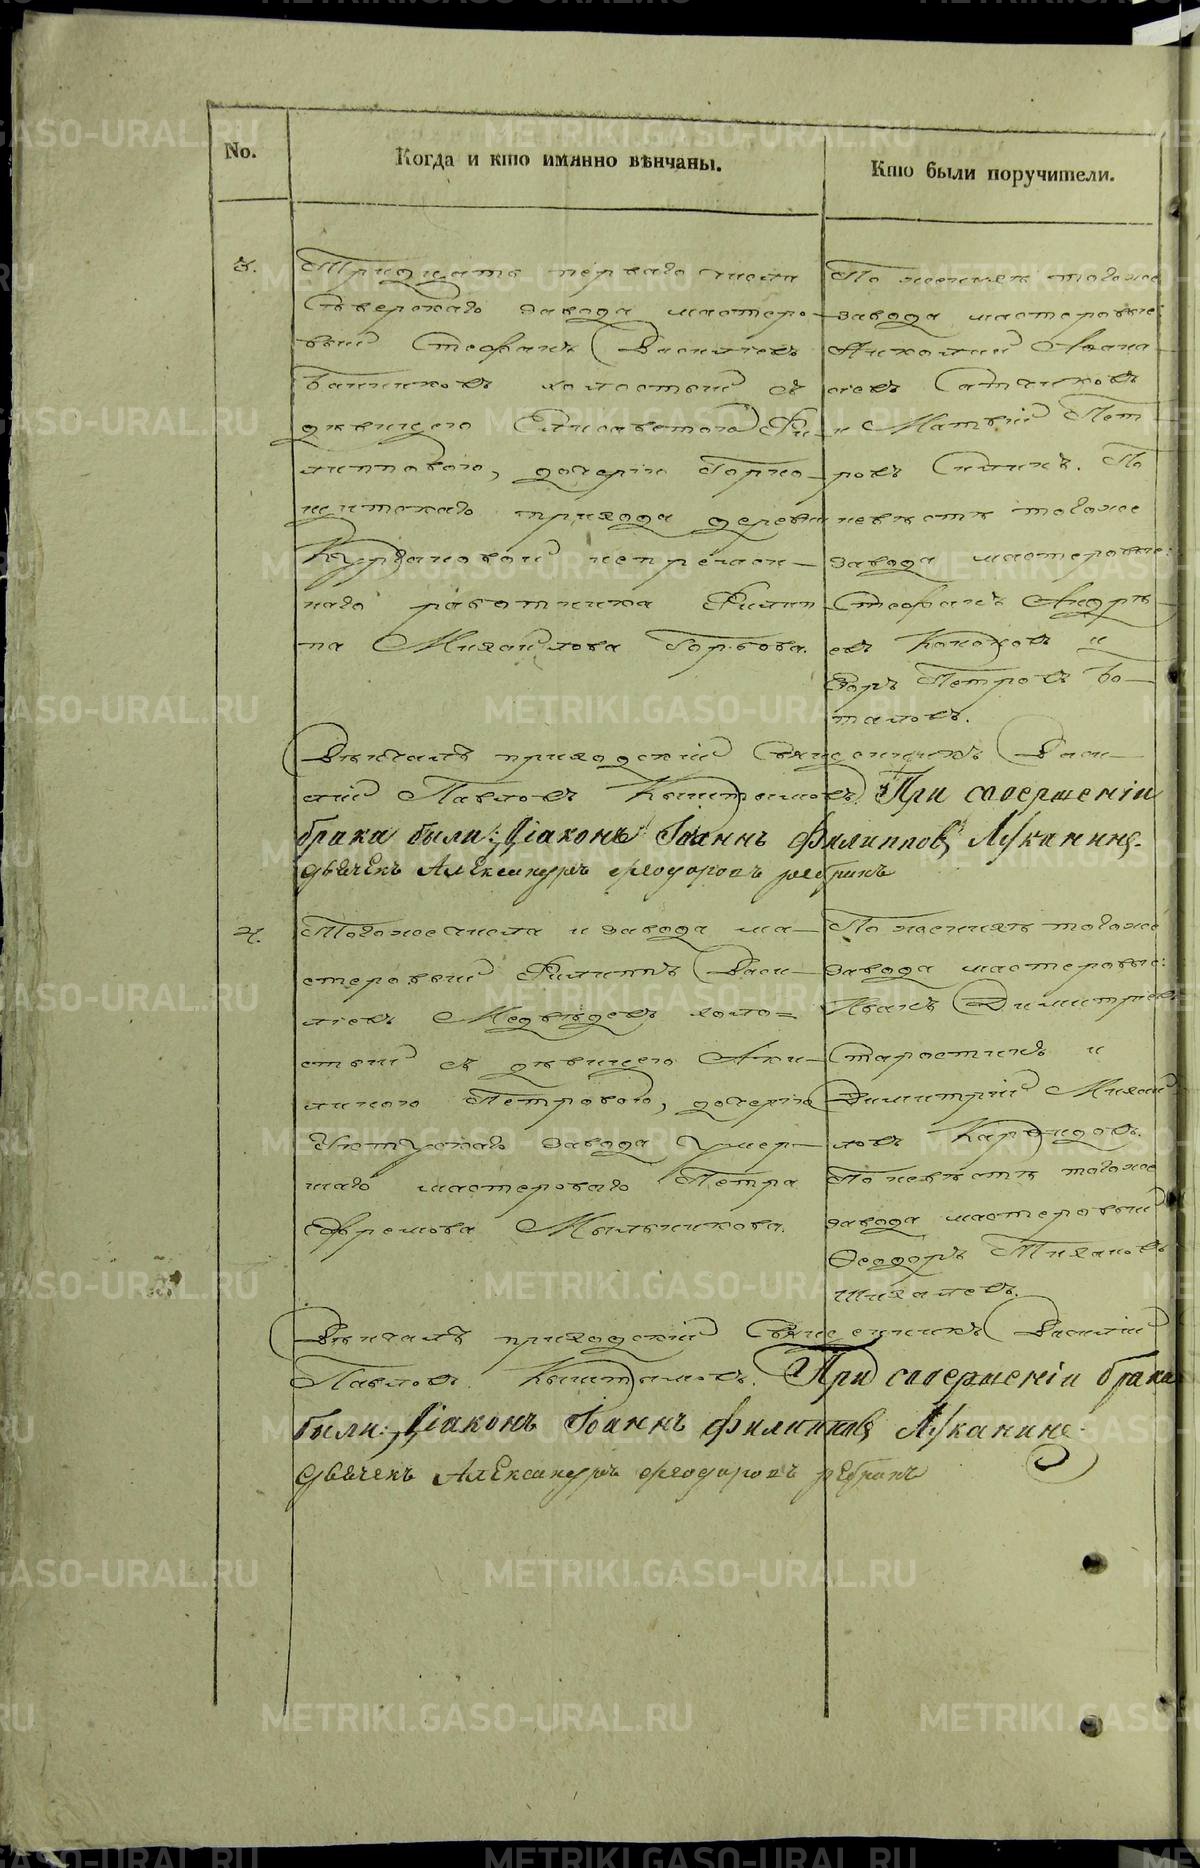 No.
Когда и кто имянно вѣнчаны.
Кто были поручители.
3.
Тридцать перваго числа
Сѣверскаго завода мастеро-
вый Стефанъ Василіевъ
Банниковъ холостый съ
дѣвицею Елисаветою Фи-
липповою, дочерію Горно-
щитскаго прихода деревни
Кургановой непремѣн-
наго работника Филип-
па Михайлова Горбова.
По женихѣ тогоже
завода мастеровые:
Николай Афана-
сіевъ
и Матвій Пет-
ровъ Силинъ. По
невѣстѣ тогоже
завода мастеровые:
Стефанъ Андре-
евъ Коноховъ и
Егоръ Петровъ Бо-
таловъ.
Вѣнчалъ приходскій Священникъ Васи-
лій Павловъ Кыштымовъ. При совершеніи
брака были: Діаконъ Іоаннъ Филипповъ Луканинъ.
Дьячекъ Александръ Феодоровъ
4.
Тогоже числа и завода ма-
стеровый Филиппъ Васи-
ліевъ Медвѣдевъ холо-
стый съ дѣвицею Аки-
линою Петровою, дочерію
Уктускаго завода умер-
шаго мастероваго Петра
Ефремова Мыльникова.
По женихѣ тогоже
завода мастеровые:
Иванъ Димитріевъ
Старостинъ и
Димитрій Михай-
ловъ
По невѣстѣ тогоже
завода мастеровый
Феодоръ Тихановъ
Шихалевъ.
Вѣнчалъ приходскій Священникъ Василій
Павловъ Кыштымовъ. При совершеніи брака
были: Діаконъ Іоаннъ Филипповъ Луканинъ.
Дьячекъ Александръ Феодоровъ
METRIKI.GASO-URAL.RU